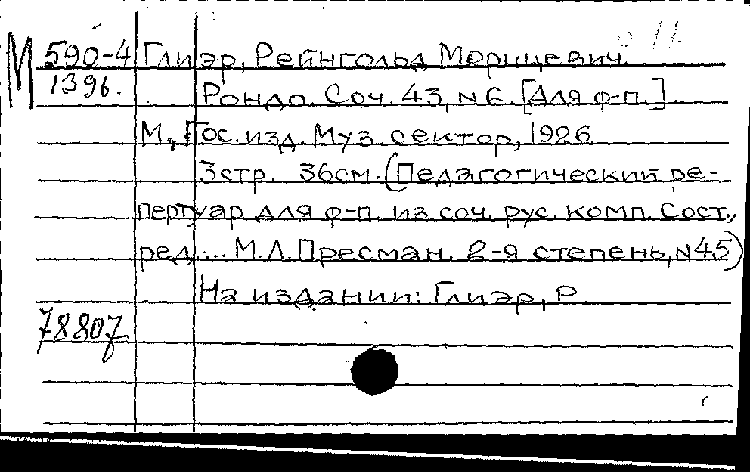 М 590-4 Глиэр, Рейнгольд Морицевич.
1396. Рондо. Соч. 43, № 6. [Для ф-п.]
М., Гос. изд. Муз. сектор, 1926
3 стр. 36 см. (Педагогический ре-
пертуар для ф-п. из соч. рус. комп. Сост.,
ред. ... М.Л. Пресман. 2-я степень, № 45)
На издании: Глиэр, Р.
78807